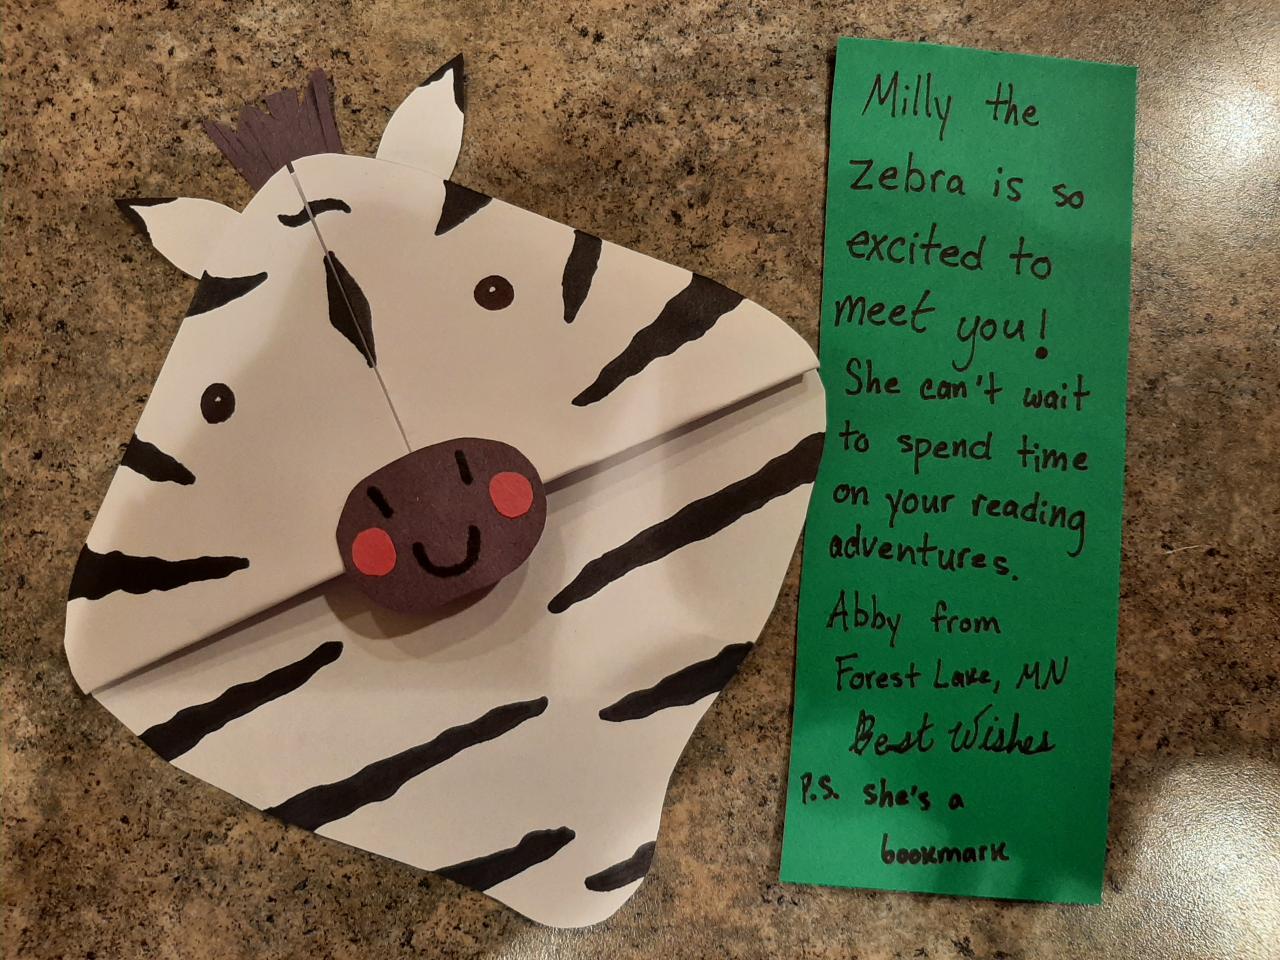 Milly the
zebra is so
excited to
meet you!
She can't wait
to spend time
on your reading
adventures.
Abby from
Forest Lake, MN
Best Wishes
P.S. she's a
bookmark